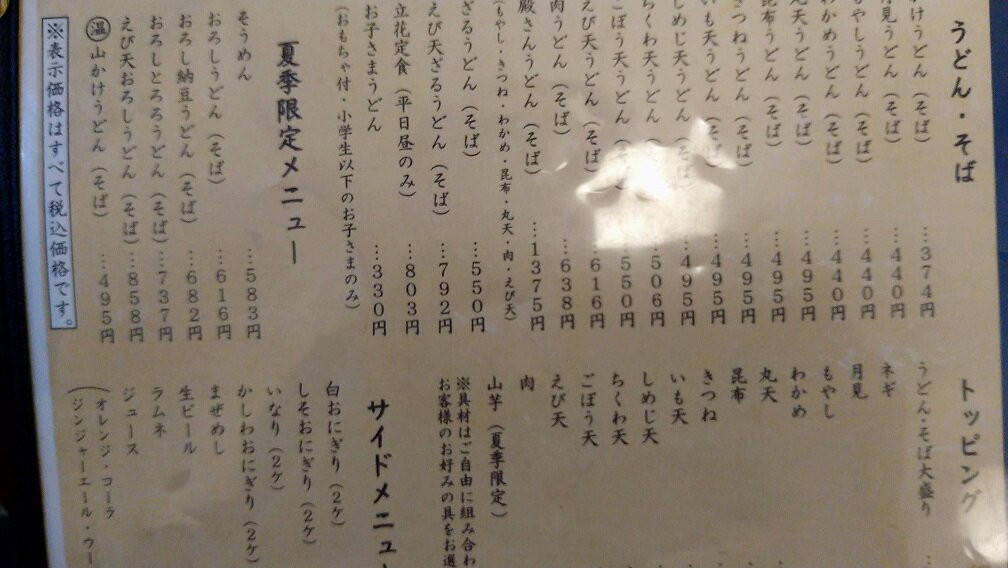 うどん・そば
けうどん（そば）…374円
月見うどん（そば）…440円
もやしうどん（そば）…440円
わかめうどん（そば）…440円
丸天うどん（そば）…495円
昆布うどん（そば）…495円
きつねうどん（そば）…495円
いも天うどん（そば）…495円
しめじ天うどん（そば）…495円
ちくわ天うどん（そば）…506円
ごぼう天うどん（そば）…550円
えび天うどん（そば）…616円
肉うどん（そば）…638円
殿さんうどん（そば）…1375円
（もやし・きつね・わかめ・昆布・丸天・肉・えび天）
ざるうどん（そば）…550円
えび天ざるうどん（そば）…792円
立花定食（平日昼のみ）…803円
お子さまうどん…330円
（おもちゃ付・小学生以下のお子さまのみ）
夏季限定メニュー
そうめん…583円
おろしうどん（そば）…616円
おろし納豆うどん（そば）…682円
おろしとろろうどん（そば）…737円
えび天おろしうどん（そば）…858円
温 山かけうどん（そば）…495円
※表示価格はすべて税込価格です。
トッピング
うどん・そば大盛り
ネギ
月見
もやし
わかめ
丸天
昆布
きつね
いも天
しめじ天
ちくわ天
ごぼう天
えび天
肉
山芋（夏季限定）
※具材はご自由に組み合わ
お客様のお好みの具をお選
サイドメニュー
白おにぎり（2ケ）
しそおにぎり（2ケ）
いなり（2ケ）
かしわおにぎり（2ケ）
まぜめし
生ビール
ラムネ
ジュース
（オレンジ・コーラ
ジンジャーエール・ウー